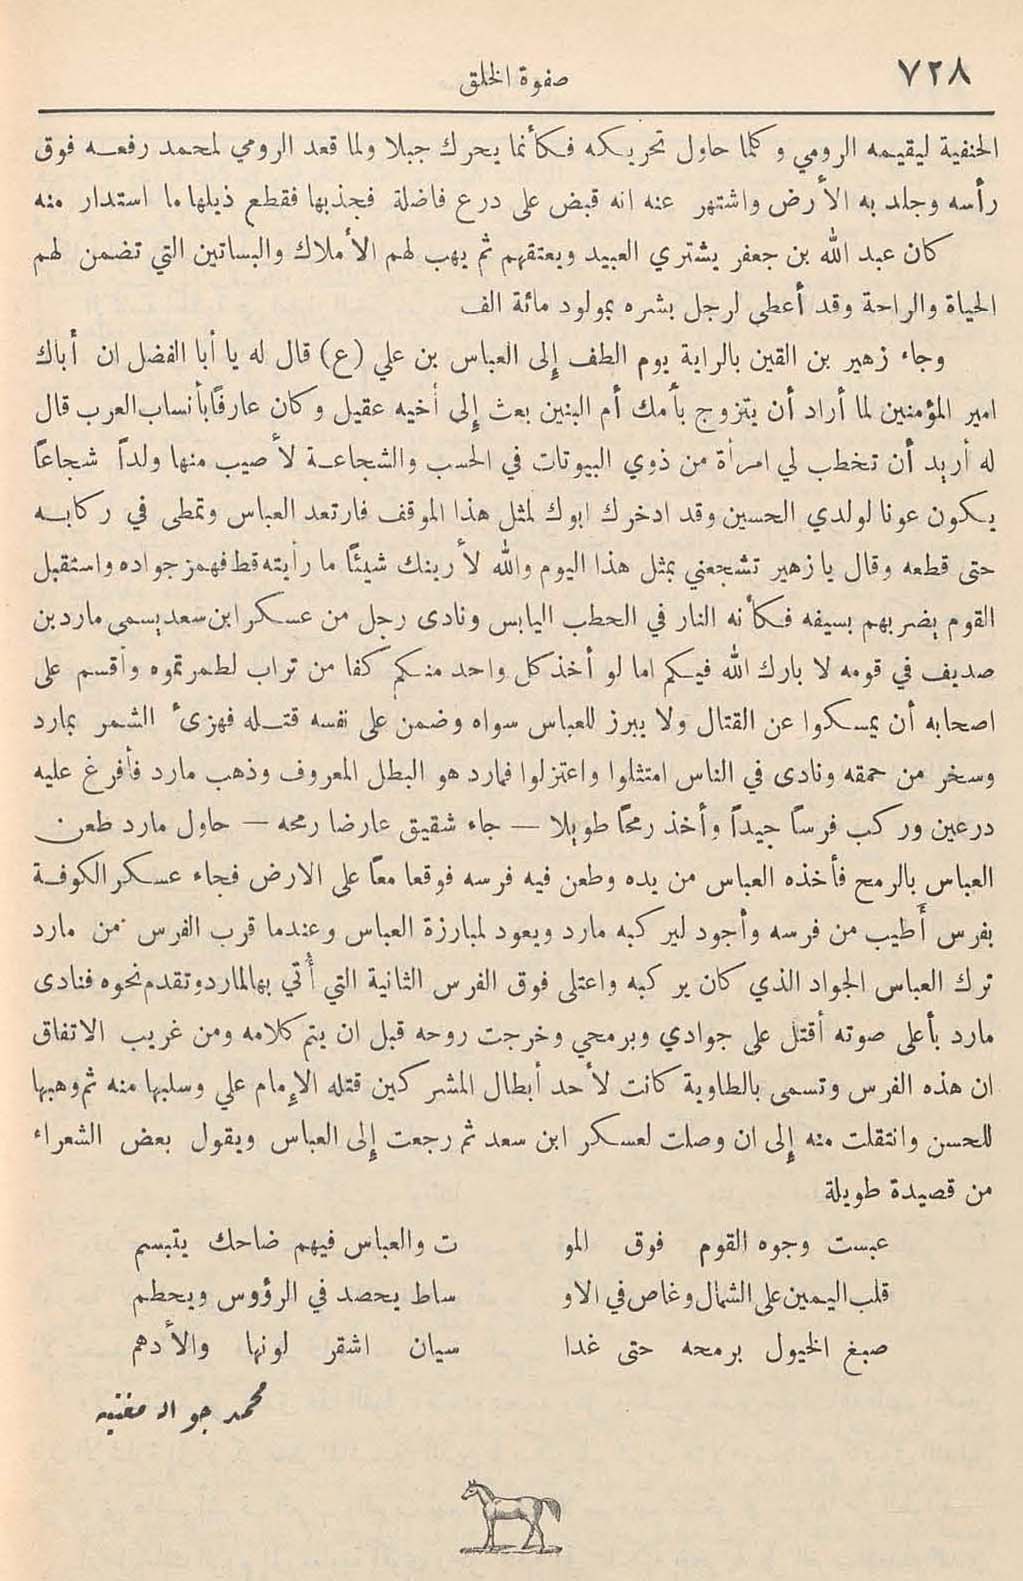 ٧٢٨
صفوة الخلق
الحنفية ليقيمه الرومي وكلما حاول تحريكه فكأنما يحرك جبلا ولما قعد الرومي لمحمد رفعه فوق
رأسه وجلد به الأرض واشتهر عنه انه قبض على درع فاضلة فجذبها فقطع ذيلها ما استدار منه
كان عبد الله بن جعفر يشتري العبيد ويعتقهم ثم يهب لهم الأملاك والبساتين التي تضمن لهم
الحياة والراحة وقد أعطى لرجل بشره بمولود مائة الف
وجاء زهير بن القين بالراية يوم الطف إلى العباس بن علي (ع) قال له يا أبا الفضل ان أباك
امير المؤمنين لما أراد أن يتزوج بأمك أم البنين بعث إلى أخيه عقيل وكان عارفاً بأنساب العرب قال
له أريد أن تخطب لي امرأة من ذوي البيوتات في الحسب والشجاعة لأصيب منها ولداً شجاعاً
يكون عونا لولدي الحسين وقد ادخرك ابوك لمثل هذا الموقف فارتعد العباس وتمطى في ركابه
حتى قطعه وقال يا زهير تشجعني بمثل هذا اليوم والله لأرينك شيئاً ما رأيته قط فهمز جواده واستقبل
القوم يضربهم بسيفه فكأنه النار في الحطب اليابس ونادى رجل من عسكر ابن سعد يسمى مارد بن
صديف في قومه لا بارك الله فيكم اما لو أخذ كل واحد منكم كفا من تراب لطمرتموه وأقسم على
اصحابه أن يمسكوا عن القتال ولا يبرز للعباس سواه وضمن على نفسه قتله فهزىء الشمر بمارد
وسخر من حمقه ونادى في الناس امتثلوا واعتزلوا فمارد هو البطل المعروف وذهب مارد فأفرغ عليه
درعين وركب فرساً جيداً وأخذ رمحاً طويلا — جاء شقيق عارضا رمحه — حاول مارد طعن
العباس بالرمح فأخذه العباس من يده وطعن فيه فرسه فوقعا معاً على الارض فجاء عسكر الكوفة
بفرس أطيب من فرسه وأجود ليركبه مارد ويعود لمبارزة العباس وعندما قرب الفرس من مارد
ترك العباس الجواد الذي كان يركبه واعتلى فوق الفرس الثانية التي أُتي بها لمارد وتقدم نحوه فنادى
مارد بأعلى صوته أقتل على جوادي وبرمحي وخرجت روحه قبل ان يتم كلامه ومن غريب الاتفاق
ان هذه الفرس وتسمى بالطاوية كانت لأحد أبطال المشركين قتله الإمام علي وسلبها منه ثم وهبها
للحسن وانتقلت منه إلى ان وصلت لعسكر ابن سعد ثم رجعت إلى العباس ويقول بعض الشعراء
من قصيدة طويلة
عبست وجوه القوم فوق المو ت والعباس فيهم ضاحك يتبسم
قلب اليمين على الشمال وغاص في الاو ساط يحصد في الرؤوس ويحطم
صبغ الخيول برمحه حتى غدا سيان اشقر لونها والأدهم
محمد جواد مغنيه